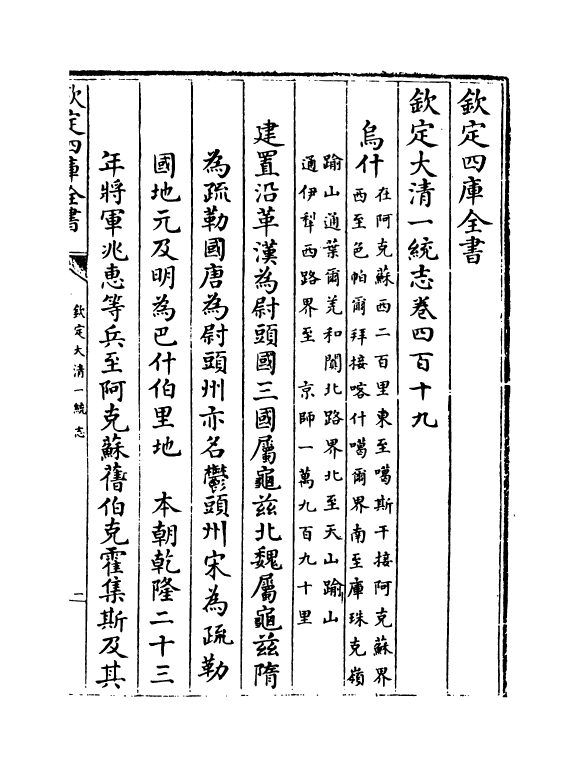 欽定四庫全書
欽定大清一統志卷四百十九
烏什
在阿克蘇西二百里東至噶斯干接阿克蘇界
西至色帕爾拜接喀什噶爾界南至庫珠克嶺
踰山通葉爾羌和闐北路界北至天山踰山
通伊犂西路界至　京師一萬九百九十里
建置沿革漢為尉頭國三國屬龜茲北魏屬龜茲隋
為疏勒國唐為尉頭州亦名鬱頭州宋為疏勒
國地元及明為巴什伯里地　本朝乾隆二十三
年將軍兆惠等兵至阿克蘇舊伯克霍集斯及其
欽定四庫全書
欽定大清一統志
二